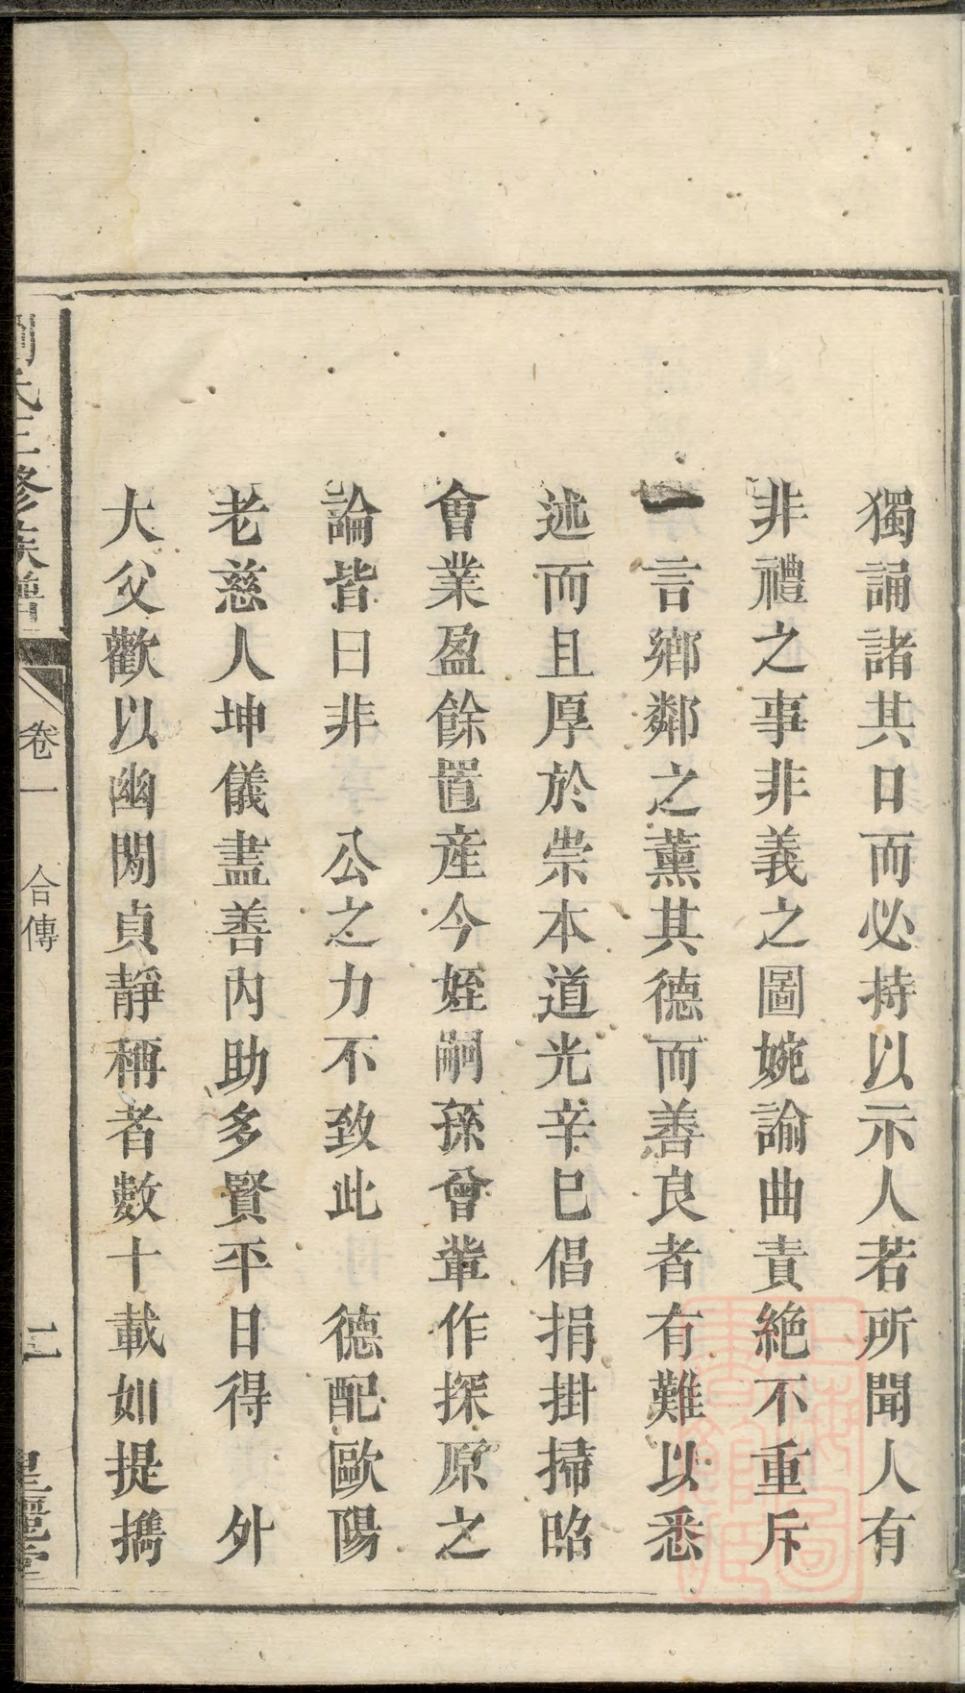 獨誦諸其口而必持以示人若所聞人有
非禮之事非義之圖婉諭曲責絕不重斥
一言鄉鄰之薰其德而善良者有難以悉
述而且厚於崇本道光辛巳倡捐掛掃昭
會業盈餘置產今姪嗣孫曾輩作探原之
論皆曰非　公之力不致此　德配歐陽
老慈人坤儀盡善內助多賢平日得　外
大父歡以幽閑貞靜稱者數十載如提攜
氏三修族譜
卷一　合傳